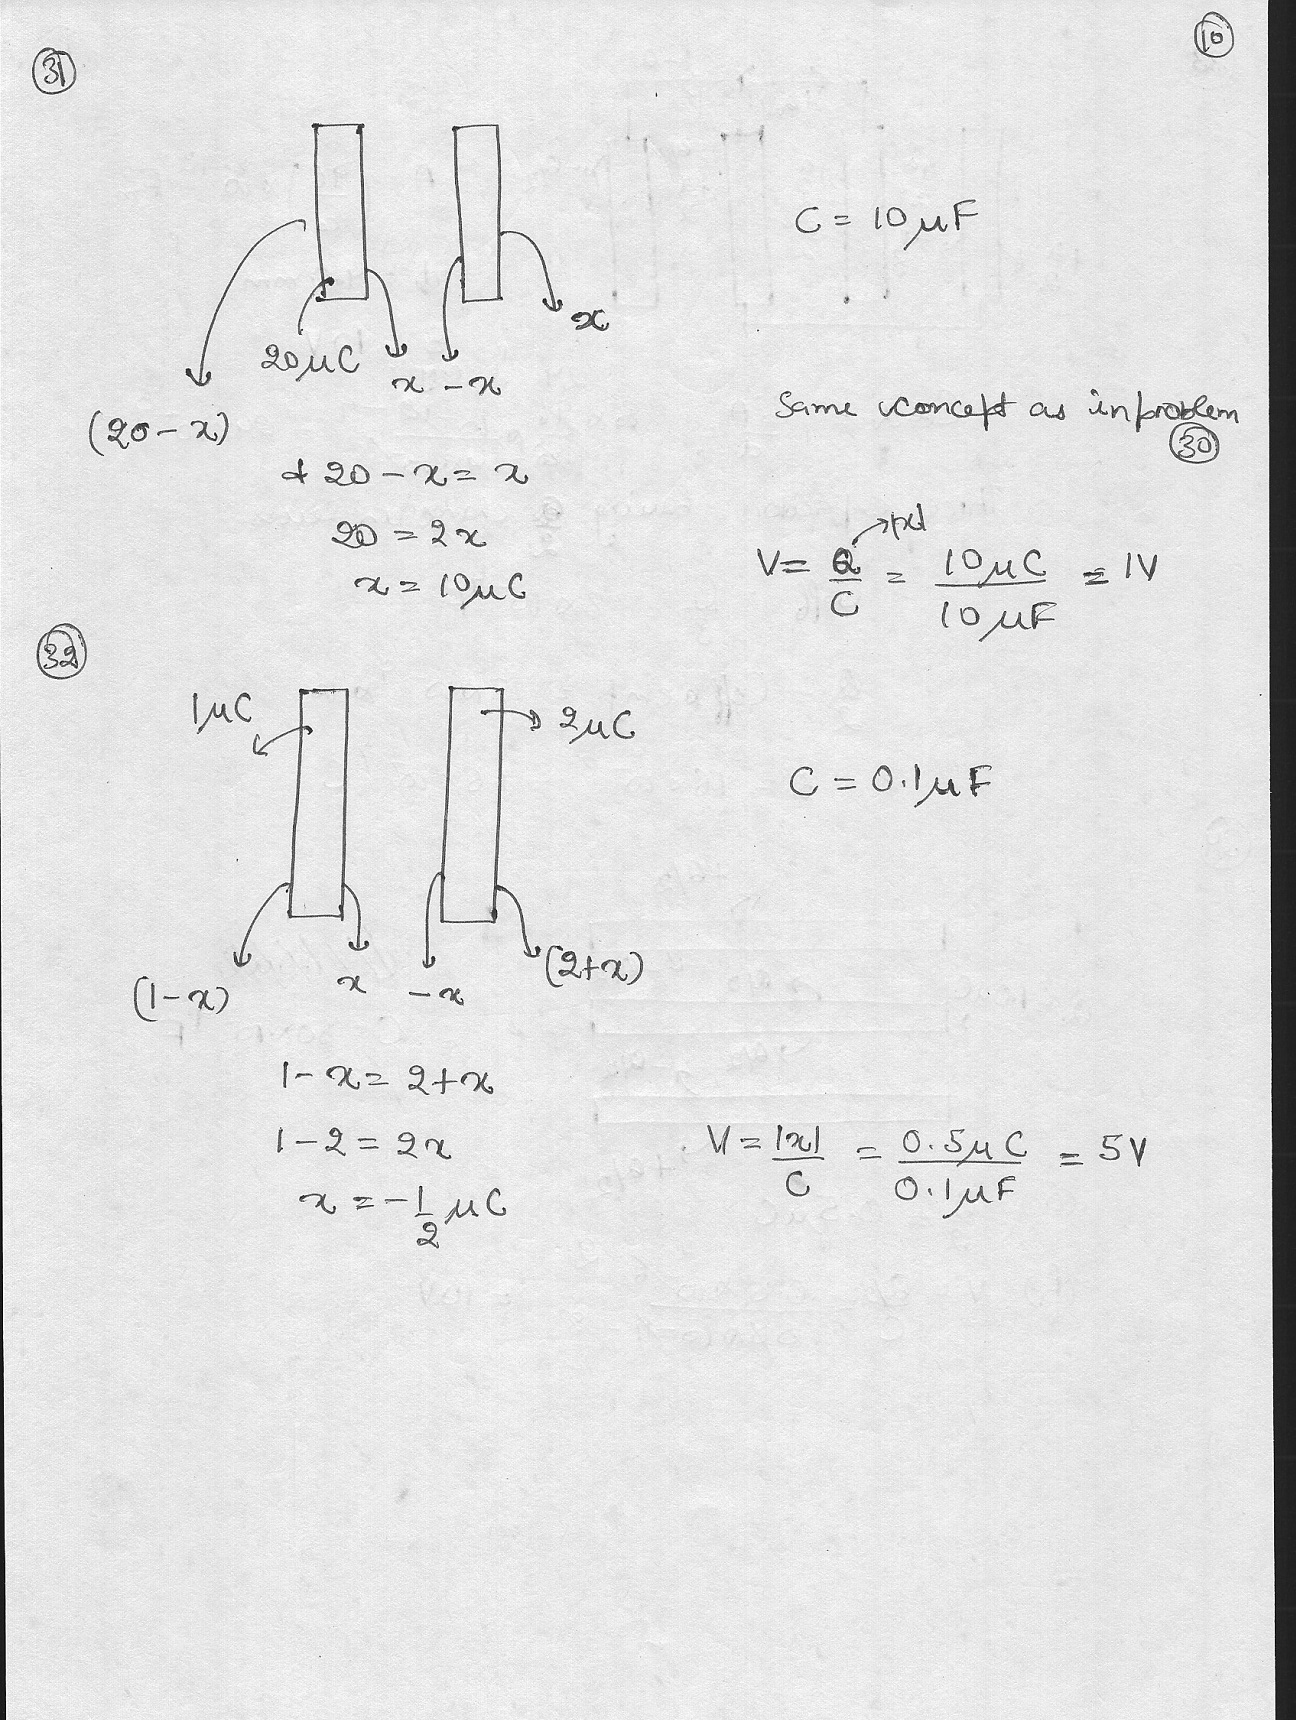 10
31
C = 10 μF
20 μC
x
x -x
(20-x)
Same concept as in problem
30
20 - x = x
20 = 2x
x = 10 μC
V = Q/C = 10 μC/10 μF = 1V
|x|
32
1 μC
2 μC
C = 0.1 μF
(1-x)
x
-x
(2+x)
1 - x = 2 + x
1 - 2 = 2x
x = -1/2 μC
V = |x|/C = 0.5 μC/0.1 μF = 5V